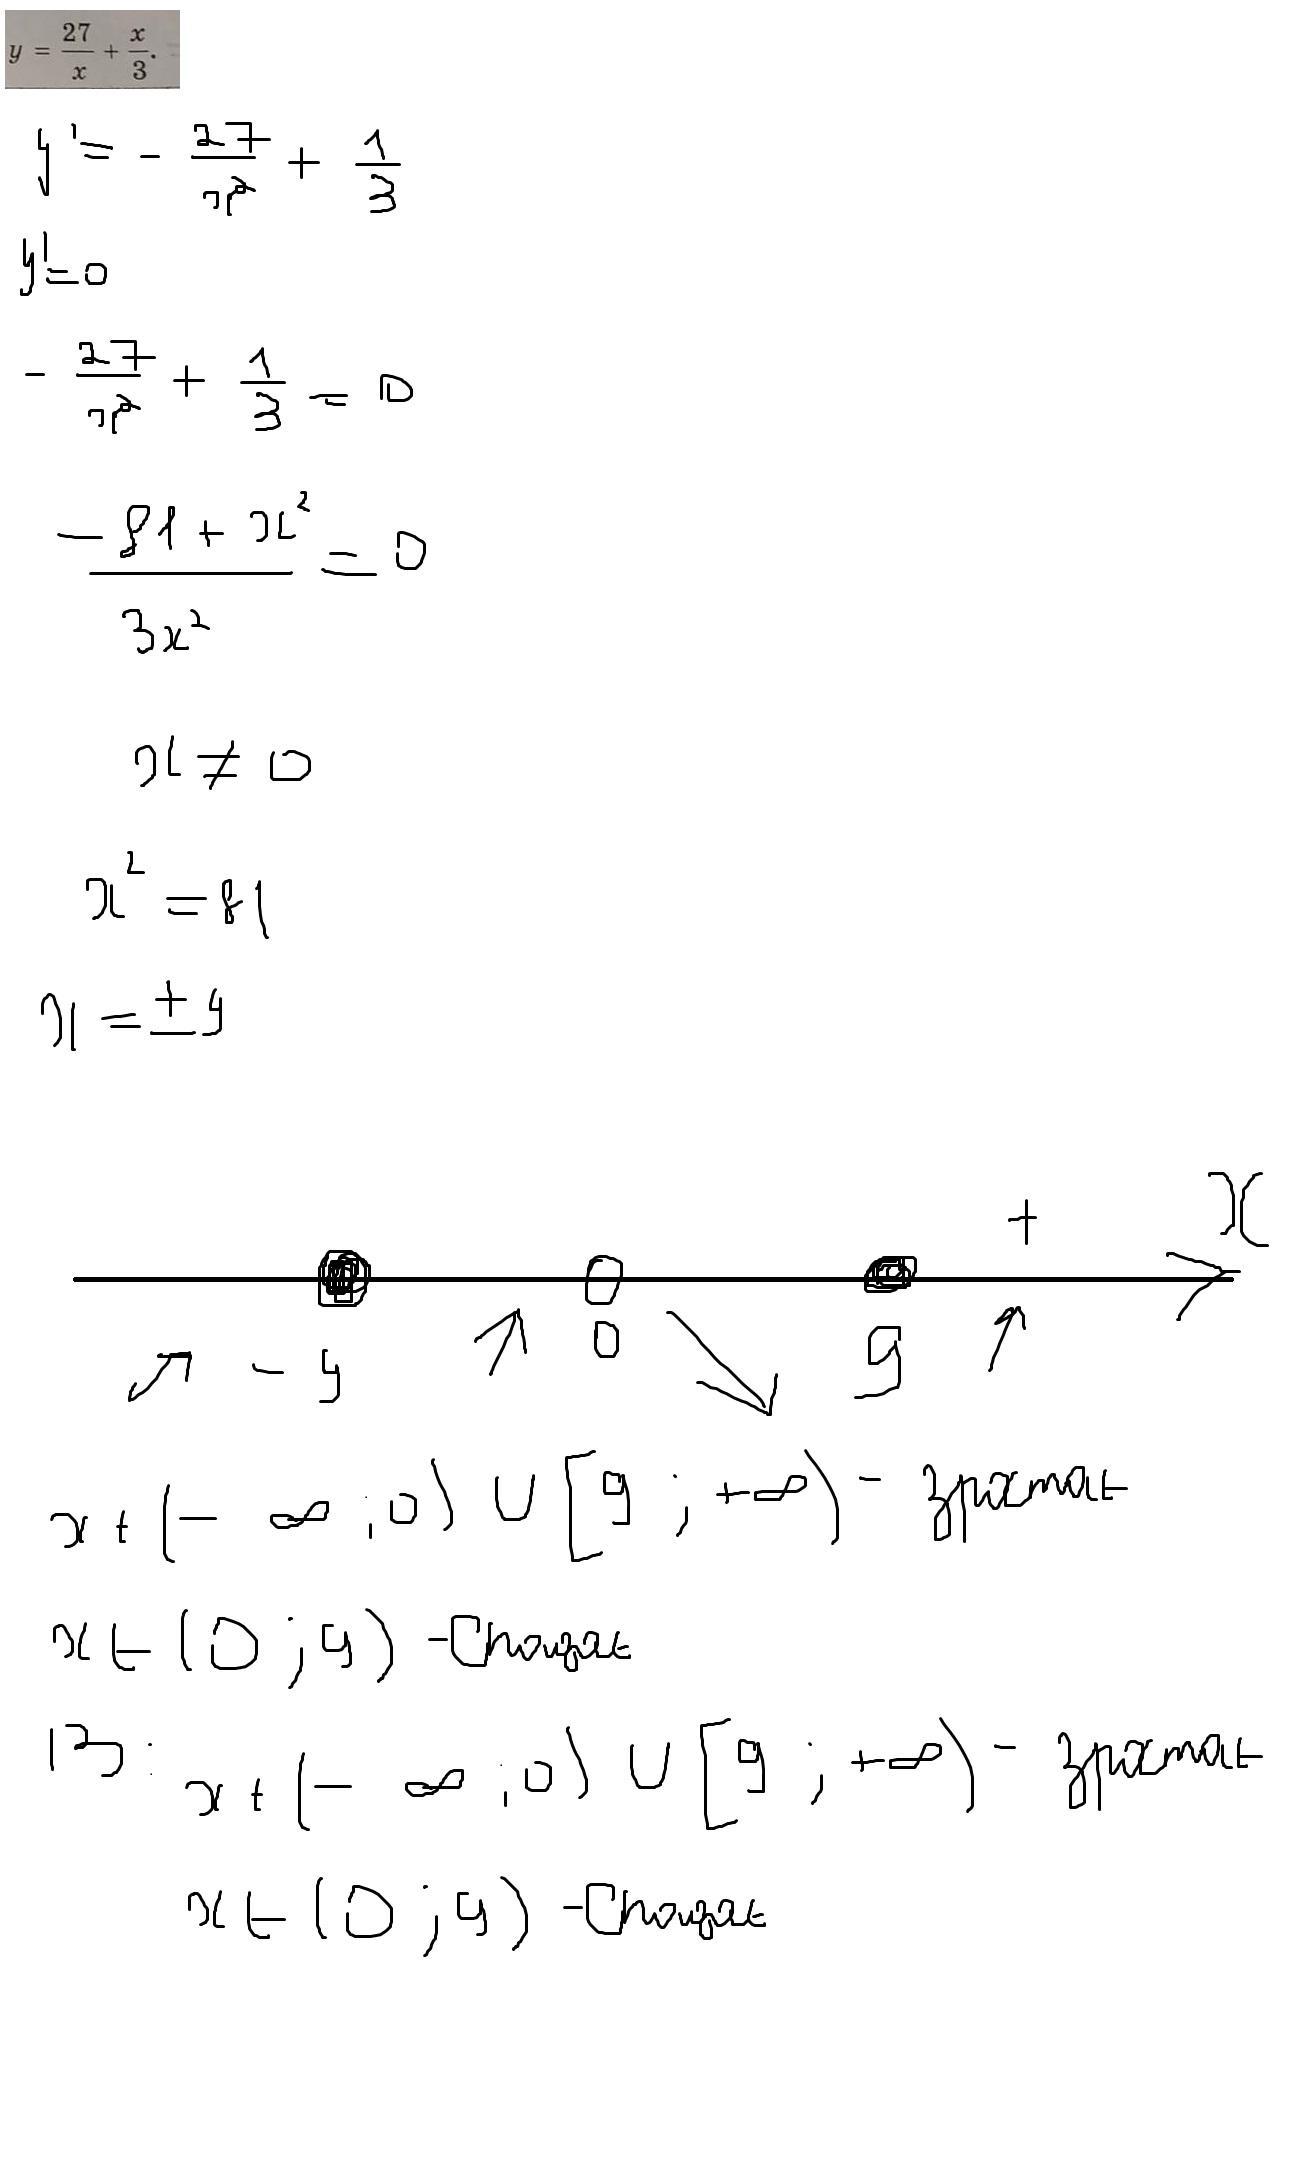 y = 27/x + x/3.
y' = - 27/x² + 1/3
y' = 0
- 27/x² + 1/3 = 0
(-81 + x²)/(3x²) = 0
x ≠ 0
x² = 81
x = ±9
+ x
-9 0 9
x ∈ (-∞; 0) ∪ [9; +∞) - зростає
x ∈ (0; 9) - Спадає
В: x ∈ (-∞; 0) ∪ [9; +∞) - зростає
x ∈ (0; 9) - Спадає